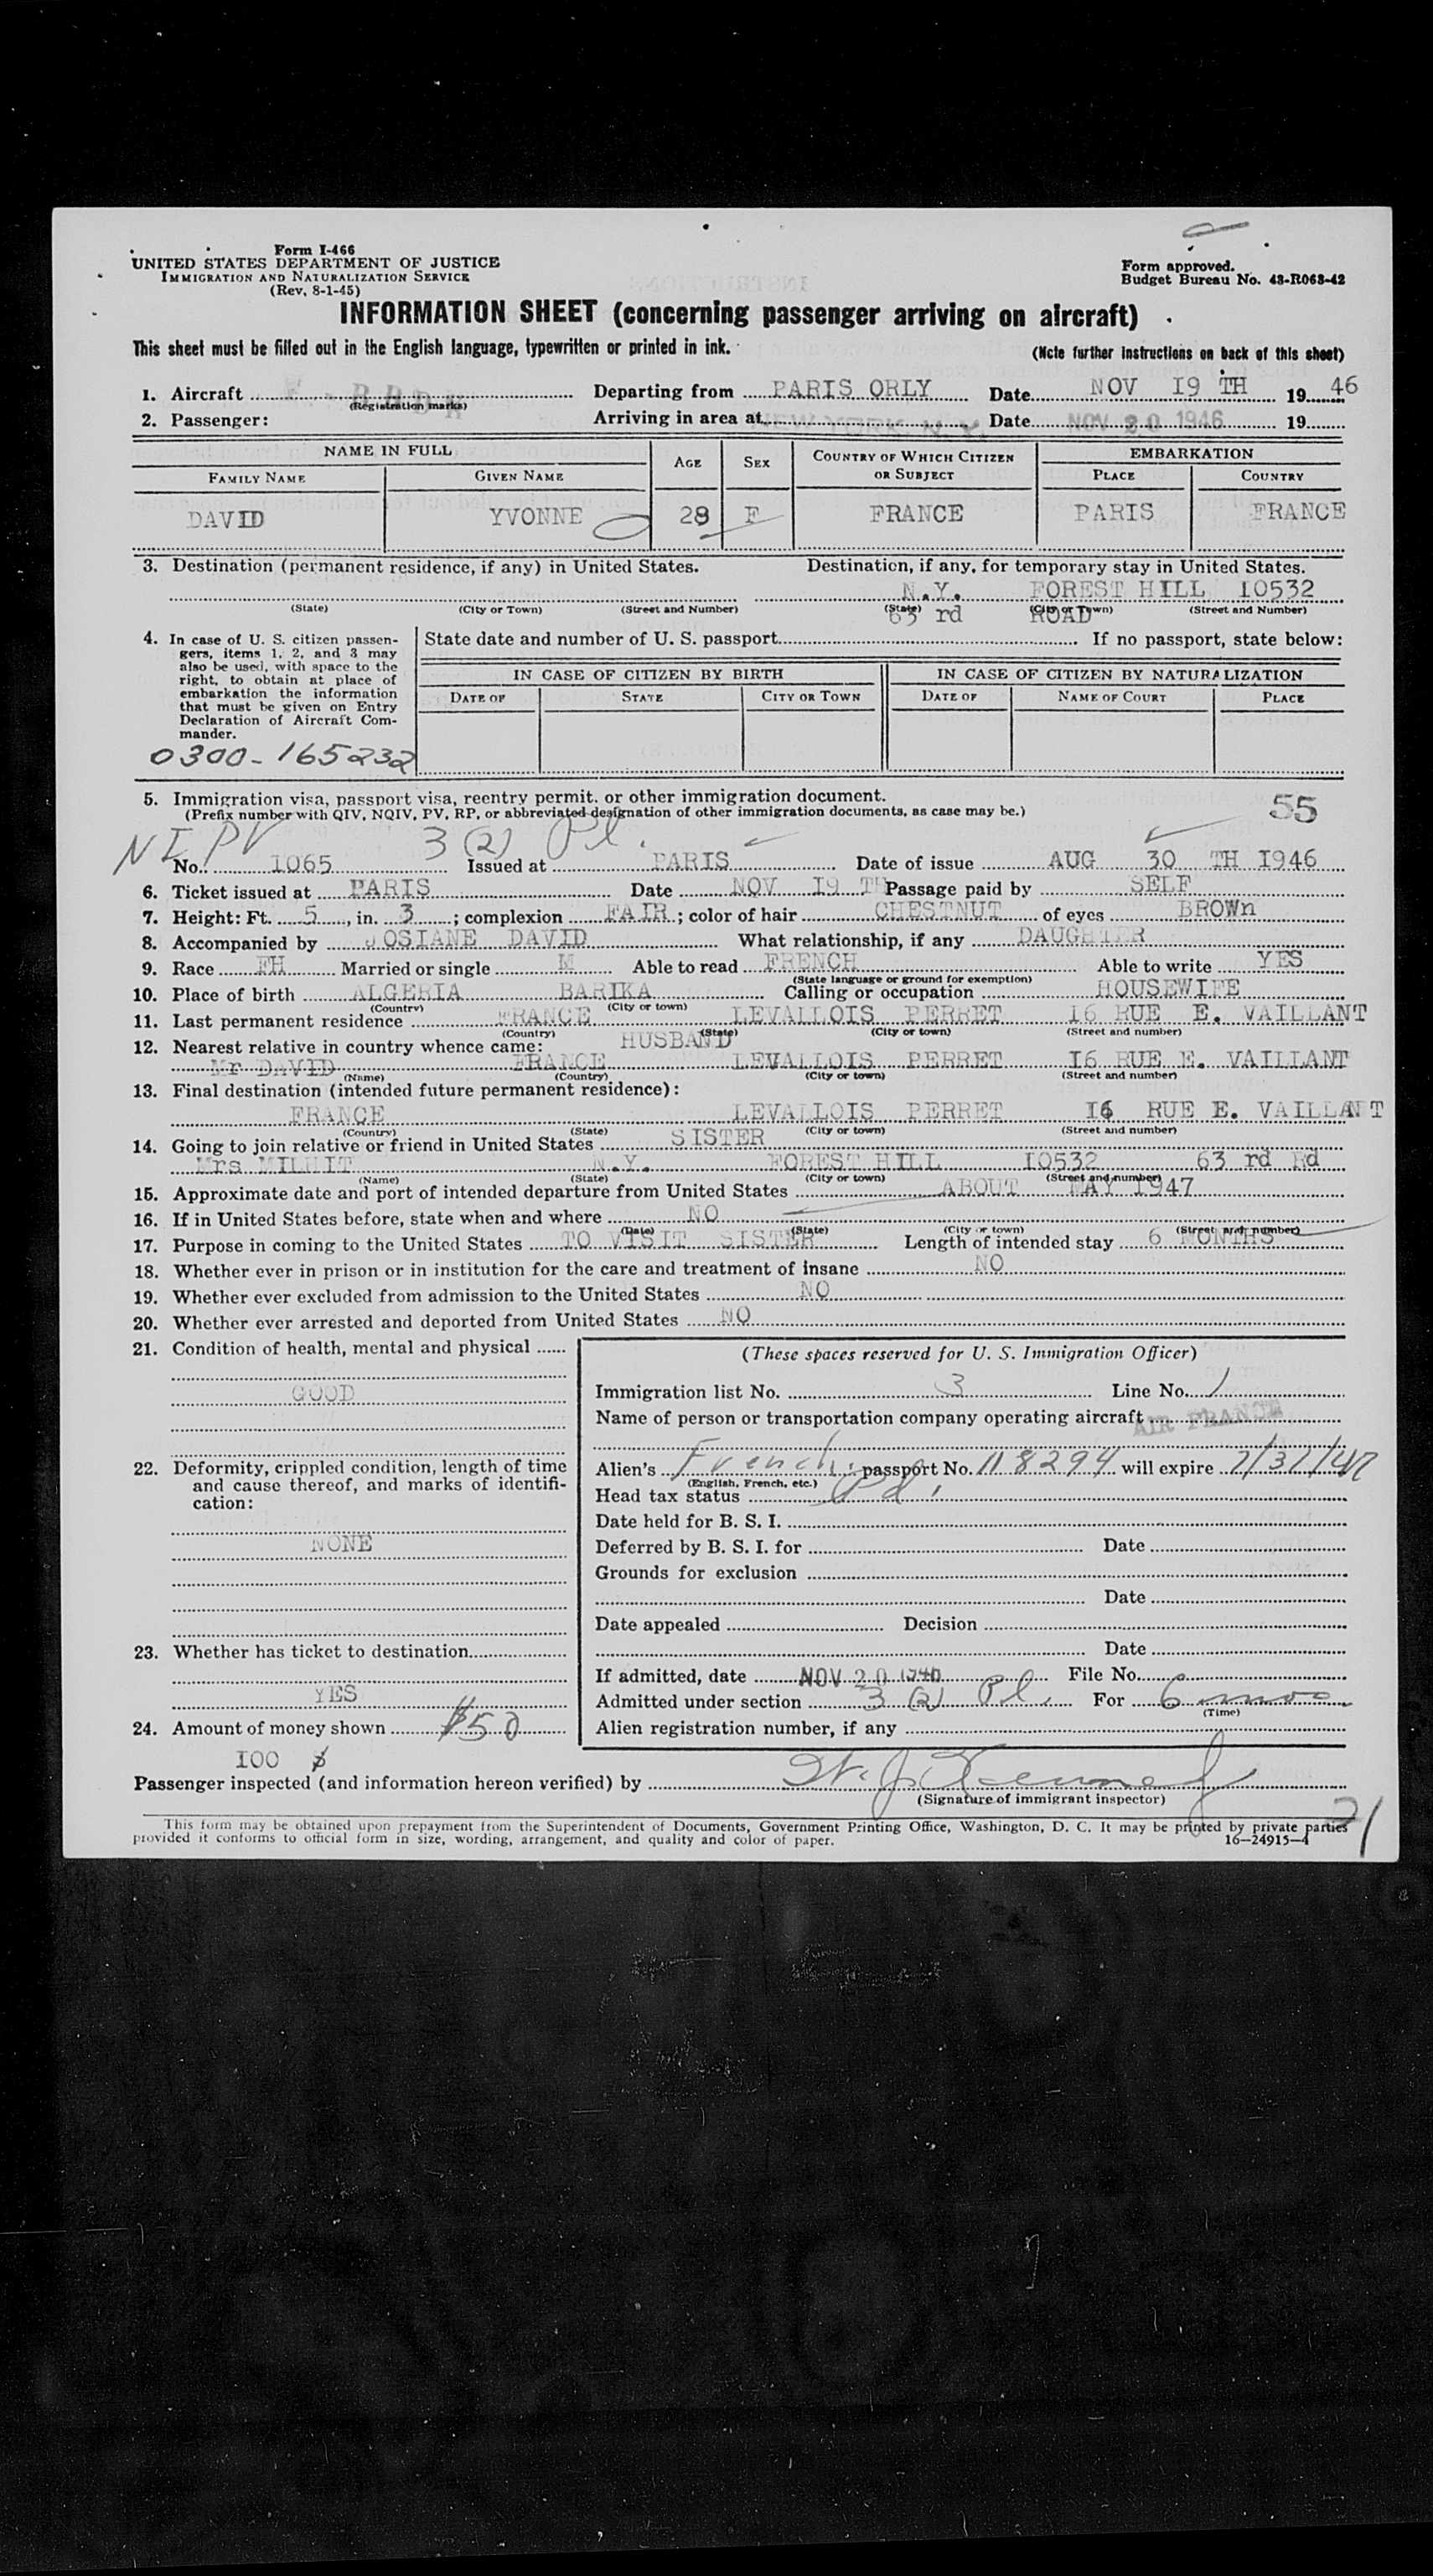 Form I-466
UNITED STATES DEPARTMENT OF JUSTICE
IMMIGRATION AND NATURALIZATION SERVICE
(Rev. 8-1-45)
Form approved.
Budget Bureau No. 43-R063-42
INFORMATION SHEET (concerning passenger arriving on aircraft)
This sheet must be filled out in the English language, typewritten or printed in ink.
(Note further instructions on back of this sheet)
1. Aircraft Departing from PARIS ORLY Date NOV 19 TH 1946
(Registration marks)
2. Passenger: Arriving in area at NEW YORK, N.Y. Date NOV 20 1946 19
NAME IN FULL AGE SEX COUNTRY OF WHICH CITIZEN OR SUBJECT EMBARKATION
FAMILY NAME GIVEN NAME PLACE COUNTRY
DAVID YVONNE 28 F FRANCE PARIS FRANCE
3. Destination (permanent residence, if any) in United States. Destination, if any, for temporary stay in United States.
N.Y. FOREST HILL 10532
(State) (City or Town) (Street and Number) (State) (City or Town) (Street and Number)
63 rd ROAD
4. In case of U. S. citizen passengers, items 1, 2, and 3 may also be used, with space to the right, to obtain at place of embarkation the information that must be given on Entry Declaration of Aircraft Commander.
State date and number of U. S. passport If no passport, state below:
IN CASE OF CITIZEN BY BIRTH IN CASE OF CITIZEN BY NATURALIZATION
DATE OF STATE CITY OR TOWN DATE OF NAME OF COURT PLACE
0300-165232
5. Immigration visa, passport visa, reentry permit, or other immigration document.
(Prefix number with QIV, NQIV, PV, RP, or abbreviated designation of other immigration documents, as case may be.)
55
NI PV 3 (2) Pl.
No. 1065 Issued at PARIS Date of issue AUG 30 TH 1946
6. Ticket issued at PARIS Date NOV 19 TH Passage paid by SELF
7. Height: Ft. 5, in. 3; complexion FAIR; color of hair CHESTNUT of eyes BROWn
8. Accompanied by JOSIANE DAVID What relationship, if any DAUGHTER
9. Race FH Married or single M Able to read FRENCH Able to write YES
(State language or ground for exemption)
10. Place of birth ALGERIA BARIKA Calling or occupation HOUSEWIFE
(Country) (City or town)
11. Last permanent residence FRANCE LEVALLOIS PERRET 16 RUE E. VAILLANT
(Country) (State) (City or town) (Street and number)
12. Nearest relative in country whence came: HUSBAND
Mr DAVID FRANCE LEVALLOIS PERRET 16 RUE E. VAILLANT
(Name) (Country) (City or town) (Street and number)
13. Final destination (intended future permanent residence):
FRANCE LEVALLOIS PERRET 16 RUE E. VAILLANT
(Country) (State) (City or town) (Street and number)
14. Going to join relative or friend in United States SISTER
Mrs N.Y. FOREST HILL 10532 63 rd Rd
(Name) (State) (City or town) (Street and number)
15. Approximate date and port of intended departure from United States ABOUT MAY 1947
16. If in United States before, state when and where NO
(Date) (State) (City or town) (Street and number)
17. Purpose in coming to the United States TO VISIT SISTER Length of intended stay 6 MONTHS
18. Whether ever in prison or in institution for the care and treatment of insane NO
19. Whether ever excluded from admission to the United States NO
20. Whether ever arrested and deported from United States NO
21. Condition of health, mental and physical
GOOD
22. Deformity, crippled condition, length of time and cause thereof, and marks of identification:
NONE
23. Whether has ticket to destination
YES
24. Amount of money shown $50
100 $
(These spaces reserved for U. S. Immigration Officer)
Immigration list No. 3 Line No. 1
Name of person or transportation company operating aircraft AIR FRANCE
Alien's French passport No. 118294 will expire 7/31/47
(English, French, etc.)
Head tax status Pd.
Date held for B. S. I.
Deferred by B. S. I. for Date
Grounds for exclusion
Date
Date appealed Decision
Date
If admitted, date NOV 20 1946 File No.
Admitted under section 3 (2) Pl. For 6 mos
(Time)
Alien registration number, if any
Passenger inspected (and information hereon verified) by
(Signature of immigrant inspector)
This form may be obtained upon prepayment from the Superintendent of Documents, Government Printing Office, Washington, D. C. It may be printed by private parties
provided it conforms to official form in size, wording, arrangement, and quality and color of paper.
16—24915-4
21